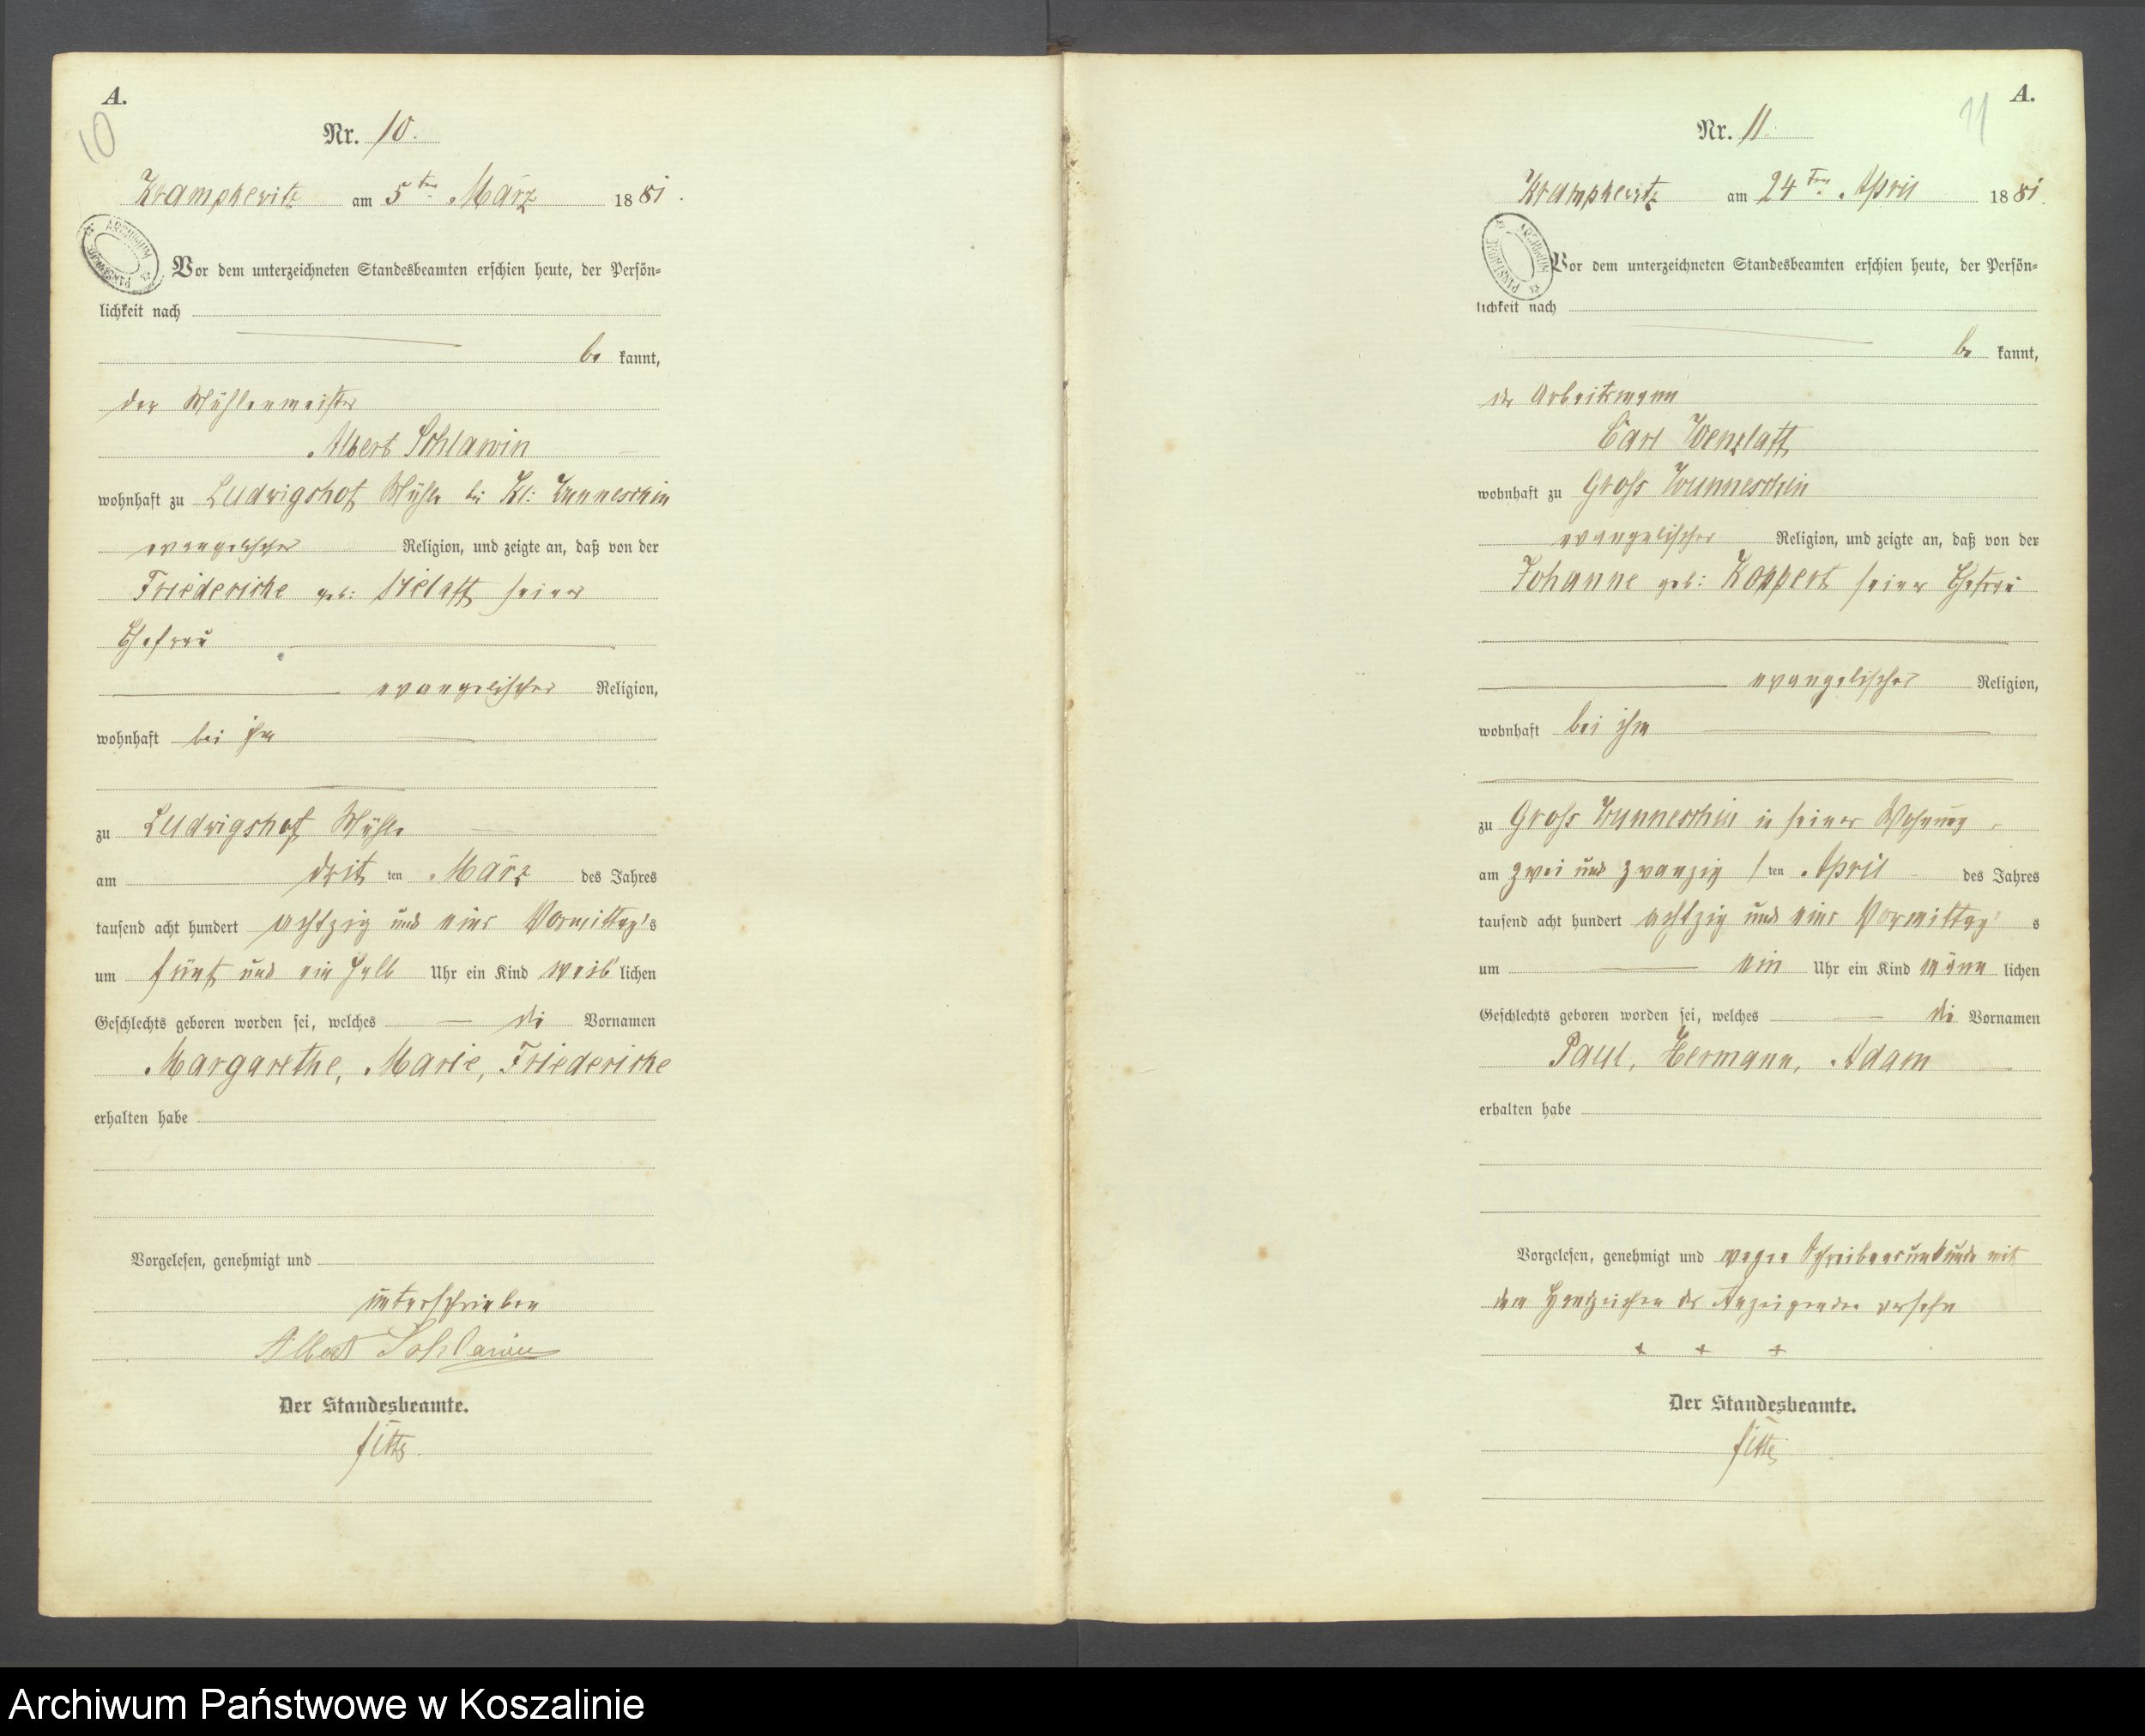 A.
10
Nr. 10.
Krampkewitz am 5ten März 1881.
Vor dem unterzeichneten Standesbeamten erschien heute, der Persön-
lichkeit nach
be kannt,
der Mühlenmeister
Albert Schlawin
wohnhaft zu Ludwigshof Mühle bei Kl: Wunneschin
evangelischer Religion, und zeigte an, daß von der
Friederike geb: seiner
Ehefrau
evangelischer Religion,
wohnhaft bei ihm
zu Ludwigshof Mühle
am drit ten März des Jahres
tausend acht hundert achtzig und eins Vormittag's
um fünf und ein halb Uhr ein Kind weib lichen
Geschlechts geboren worden sei, welches die Vornamen
Margarethe, Marie, Friederike
erhalten habe
Vorgelesen, genehmigt und
unterschrieben
Albert Schlawin
Der Standesbeamte.
A.
11
Nr. 11.
Krampkewitz am 24ten April 1881.
Vor dem unterzeichneten Standesbeamten erschien heute, der Persön-
lichkeit nach
be kannt,
der Arbeitsmann
Carl Wenzlaff
wohnhaft zu Groß Wunneschin
evangelischer Religion, und zeigte an, daß von der
Johanne geb: Koppert seiner Ehefrau
evangelischer Religion,
wohnhaft bei ihm
zu Groß Wunneschin in seiner Wohnung
am zwei und zwanzig s ten April des Jahres
tausend acht hundert achtzig und eins Vormittag' s
um ein Uhr ein Kind männ lichen
Geschlechts geboren worden sei, welches die Vornamen
Paul, Hermann, Adam
erhalten habe
Vorgelesen, genehmigt und wegen Schreibensunkunde mit
dem Handzeichen des Anzeigenden versehn
+ + +
Der Standesbeamte.
Archiwum Państwowe w Koszalinie